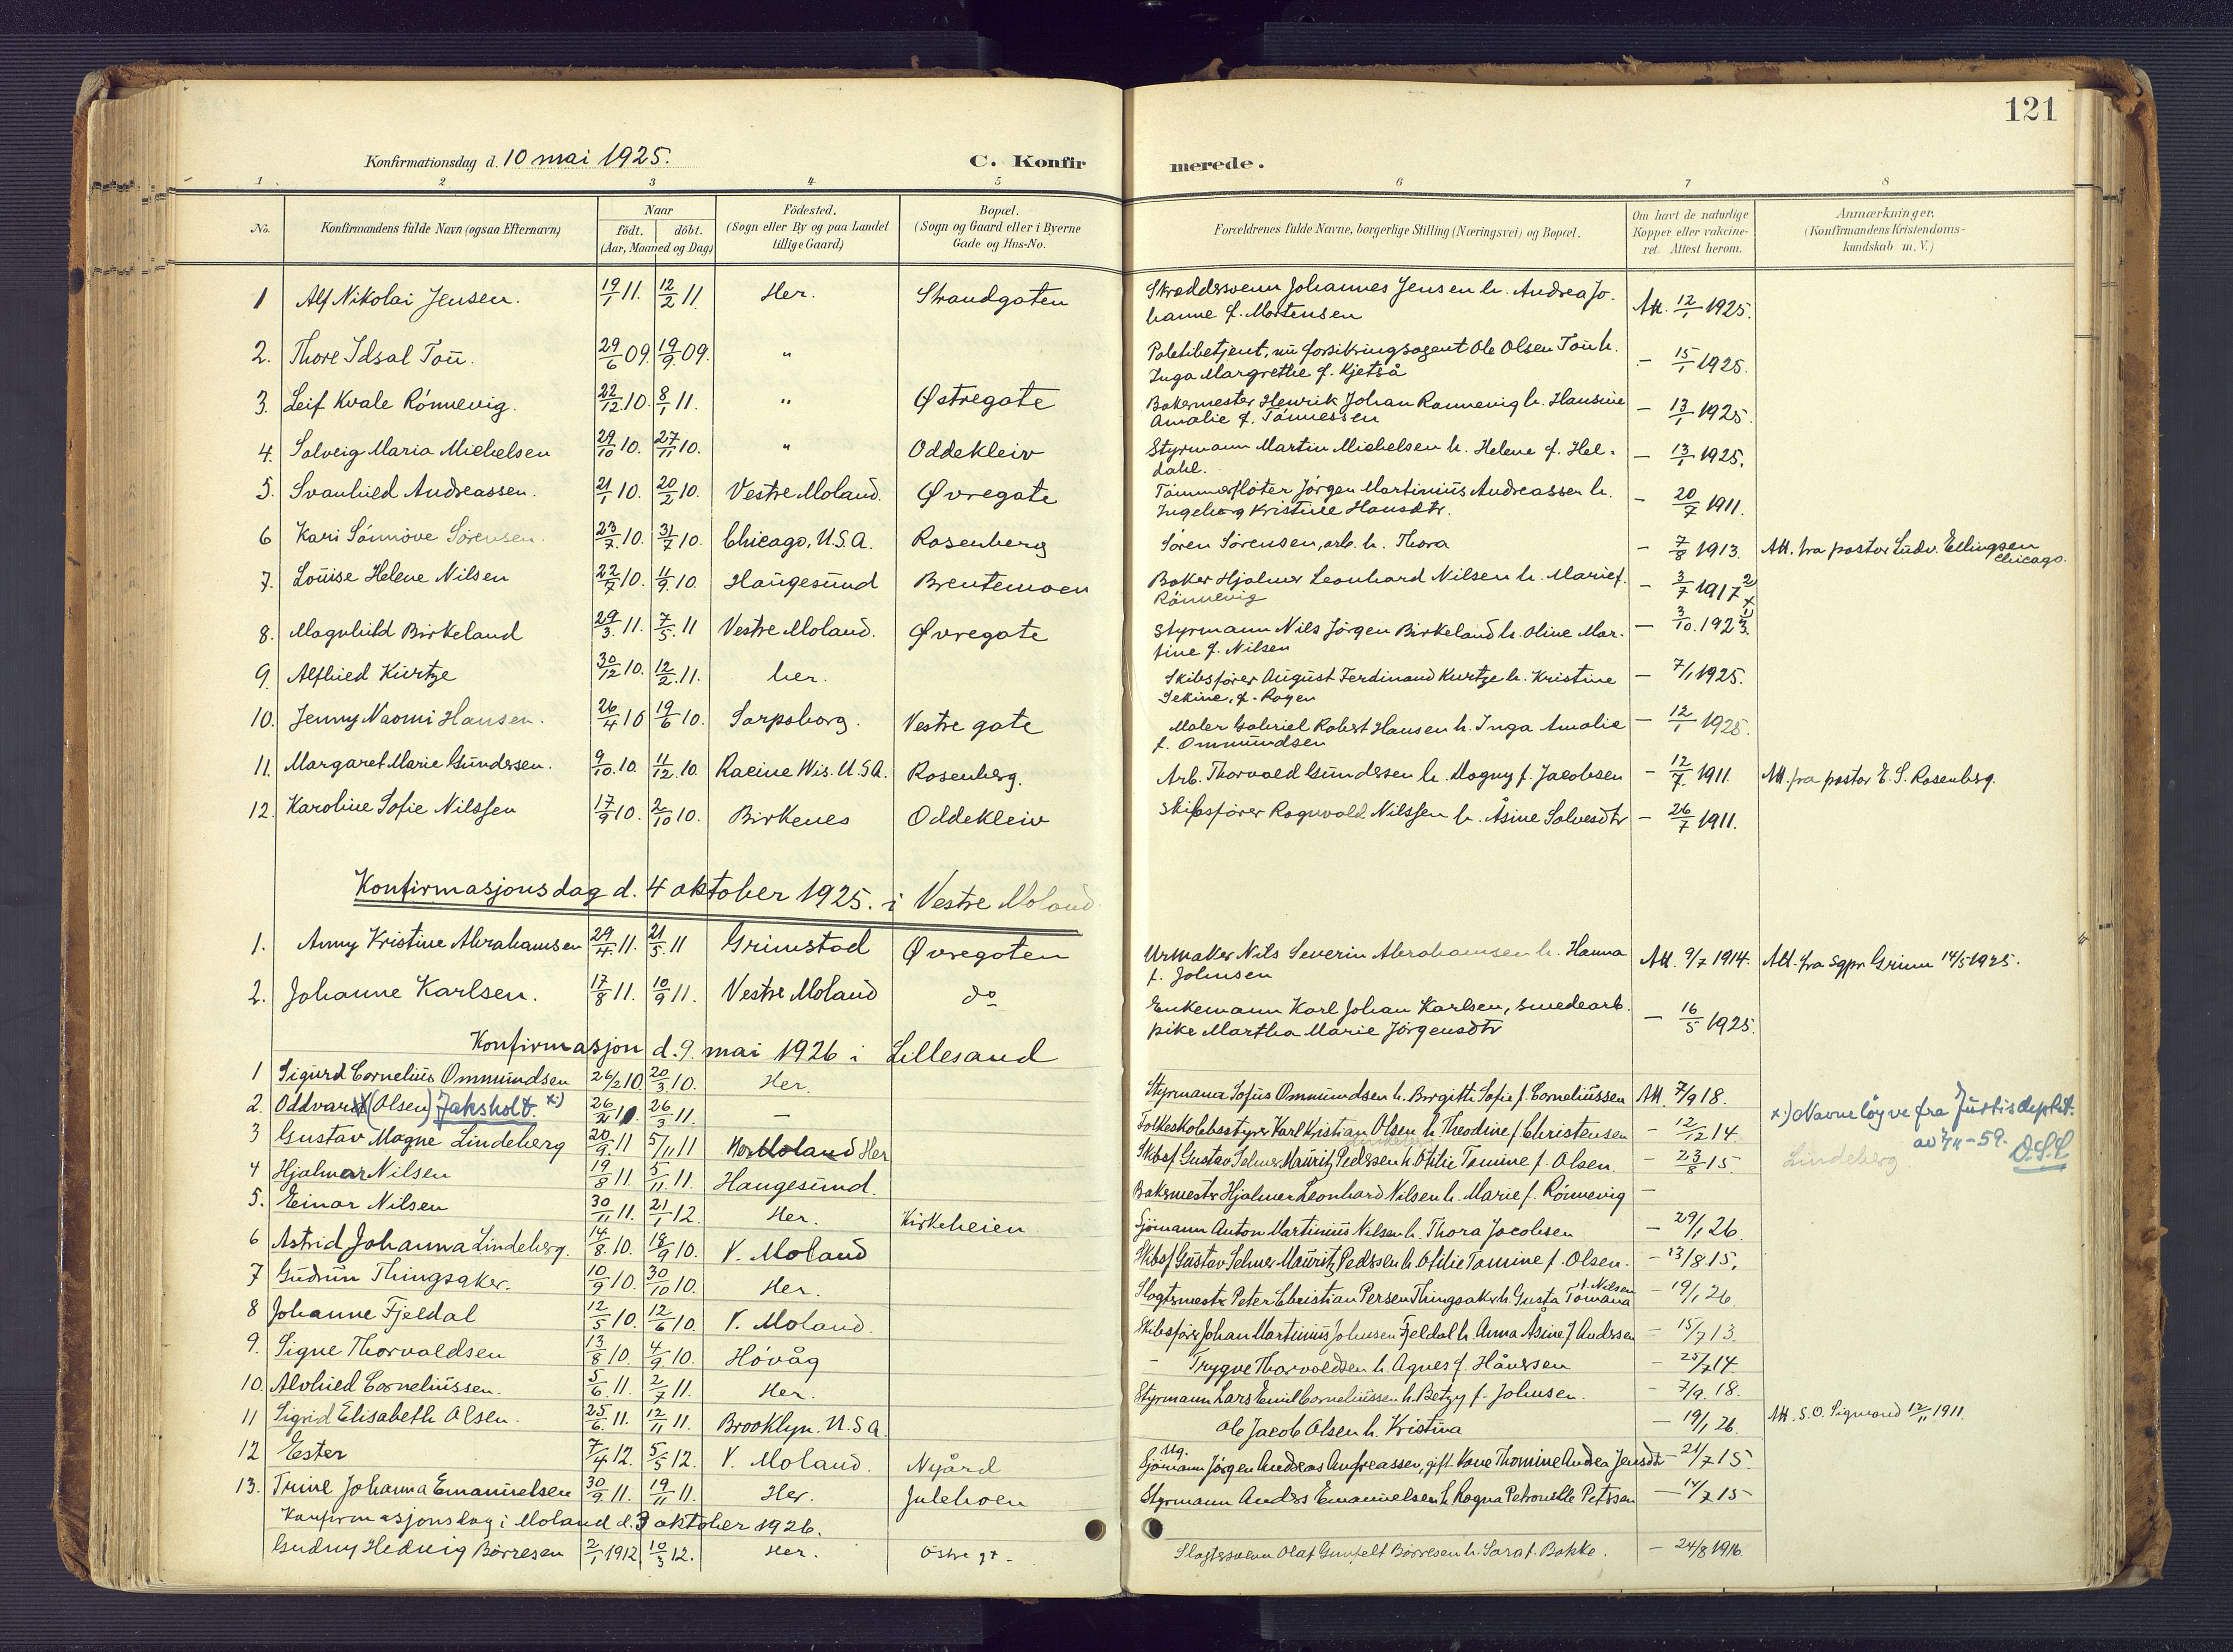 121
Konfirmationsdag d. 10 mai 1925.
C. Konfirmerede.
1 2 3 4 5 6 7 8
No. Konfirmandens fulde Navn (ogsaa Efternavn) Naar födt. döbt. (Aar, Maaned og Dag) Födested. (Sogn eller By og paa Landet tillige Gaard) Bopæl. (Sogn og Gaard eller i Byerne Gade og Hus-No. Forældrenes fulde Navne, borgerlige Stilling (Næringsvei) og Bopæl. Om havt de naturlige Kopper eller vakcineret. Attest herom. Anmærkninger. (Konfirmandens Kristendomskundskab m. V.)
1 Alf Nikolai Jensen. 19/1 11. 12/2 11. Her. Strandgaten Skræddersvenn Johannes Jensen h. Andrea Johanne f. Mortensen Att. 12/1 1925.
2. Thore Idsal Tou. 29/6 09. 19/9 09. " Politibetjent, nu forsikringsagent Ole Olsen Tou h. Inga Margrethe f. Kjetså - 15/1 1925.
3. Leif Kvale Rönnevig. 22/12 10. 8/1 11. " Østregate Bakermester Henrik Johan Rønnevig h. Hansine Amalie f. Tönnessen - 13/1 1925.
4. Solveig Maria Michelsen 29/10 10. 27/11 10. " Oddekleiv Styrmann Martin Michelsen h. Helene f. Heldahl. - 13/1 1925.
5. Svanhild Andreassen. 21/1 10. 20/2 10. Vestre Moland. Øvregate Tömmerflöter Jörgen Martinius Andreassen h. Ingeborg Kristine Hansdtr. - 20/7 1911.
6 Kari Sönnöve Sörensen. 23/7 10. 31/7 10. Chicago, U.S.A. Rosenberg Sören Sörensen, arb. h. Thora - 7/8 1913. Att. fra pastor Ludv. Ellingsen Chicago.
7. Louise Helene Nilsen 22/7 10. 11/9 10. Haugesund Brentemoen Baker Hjalmer Leonhard Nilsen h. Marie f. Rönnevig - 3/7 1917
8. Magnhild Birkeland 29/3 11. 7/5 11 Vestre Moland. Øvregate Styrmann Nils Jörgen Birkeland h. Oline Martine f. Nilsen - 3/10. 1923.
9. Alfhied Kurtze 30/12 10. 12/2 11. her. Skibsförer August Ferdinand Kurtze h. Kristine Sekine, f. Royen - 7/1 1925.
10. Jenny Naomi Hansen. 26/4 10 19/6 10. Sarpsborg. Vestre gate Maler Gabriel Robert Hansen h. Inga Amalie f. Ommundsen - 12/1 1925.
11. Margaret Marie Gundersen. 9/10 10. 11/12 10. Racine Wis. U.S.A. Rosenberg. Arb. Thorvald Gundersen h. Dagny f. Jacobsen - 12/7 1911. Att. fra pastor E. S. Rosenberg.
12. Karoline Sofie Nilssen 17/9 10. 2/10 10. Birkenes Oddekleiv Skibsförer Ragnvald Nilssen h. Åsine Salvesdtr - 26/7 1911.
Konfirmasjonsdag d. 4 oktober 1925. i Vestre Moland
1. Anny Kristine Abrahamsen 29/4 11. 21/5 11 Grimstad Øvregaten Urmaker Nils Severin Abrahamsen h. Hanna f. Johnsen Att. 9/7 1914. Att. fra sgpr. Grimm 14/5 1925.
2. Johanne Karlsen. 17/8 11. 10/9 11. Vestre Moland do Enkemann Karl Johan Karlsen, smedearb. pike Martha Marie Jörgensdtr - 16/5 1925.
Konfirmasjon d. 9. mai 1926 i Lillesand
1 Sigurd Cornelius Ommundsen 26/2 10. 20/3 10. Her. Styrmann Sofus Ommundsen h. Birgitte Sofie f. Corneliussen Att. 7/9 18.
2. Oddvar (Olsen) Jaksholt. x) 26/2 11. 26/3 11. — Folkeskolebestyrer Karl Kristian Olsen h. Theodine f. Christensen - 12/12 14. x) Navnelöyve fra Justisdeptet. av 7/11 - 59. O.S.L
3 Gustav Magne Lindeberg 20/9 11 5/11 11 Her Skibsf. Gustav Selmer Mauritz Pedersen h. Otilie Tomine f. Olsen. - 23/8 15 Lindeberg
4 Hjalmar Nilsen 19/8 11. 5/11 11. Haugesund. Bakermester Hjalmer Leonhard Nilsen h. Marie f. Rönnevig -
5. Einar Nilsen 30/11 11. 21/1 12. Her. Kirkeheien Sjömann Anton Martinius Nilsen h. Thora Jacobsen - 29/1 26.
6 Astrid Johanna Lindeberg. 14/8 10. 18/9 10. V. Moland Skibsf. Gustav Selmer Mauritz Pedersen h. Otilie Tomine f. Olsen. - 13/8 15.
7 Gudrun Thingsaker. 10/9 10. 30/10 10. Her. Slagtermester Peter Christian Persen Thingsaker h. Gusta Tomana f. Nilsen - 19/1 26.
8 Johanne Fjeldal 12/5 10. 12/6 10. V. Moland. Skibsförer Johan Martinius Johnsen Fjeldal h. Anna Asine f. Andersen - 15/7 13.
9. Signe Thorvaldsen 13/8 10. 4/9 10. Hövåg - Trygve Thorvaldsen h. Agnes f. Hånersen - 25/7 14.
10. Alvhied Corneliussen. 5/6 11. 2/7 11. Her. Styrmann Lars Emil Corneliussen h. Betzy f. Johnsen. - 7/9. 18.
11 Sigrid Elisabeth Olsen. 25/6 11. 12/11 11. Brooklyn. U.S.A. Ole Jacob Olsen h. Kristina - 19/1 26. Att. S.O. Sigmond 12/11 1911.
12 Ester 7/4 12. 5/5 12. V. Moland. Nygård Ug. Sjömann Jörgen Andreas Andreassen, gift. Kone Thomine Andrea Jensdtr - 21/7 15.
13. Trine Johanna Emanuelsen 30/9 11. 19/11 11. Her. Julehoen Styrmann Anders Emanuelsen h. Ragna Petronelle Petersen - 14/7 15
Konfirmasjonsdag i Moland d. 3 oktober 1926.
Gudny Hedvig Börresen 2/1 1912 10/3 12. Her. Østre gt. Slagtersvenn Olaf Gunfelt Börresen h. Sara f. Bakke. - 24/8 1916.